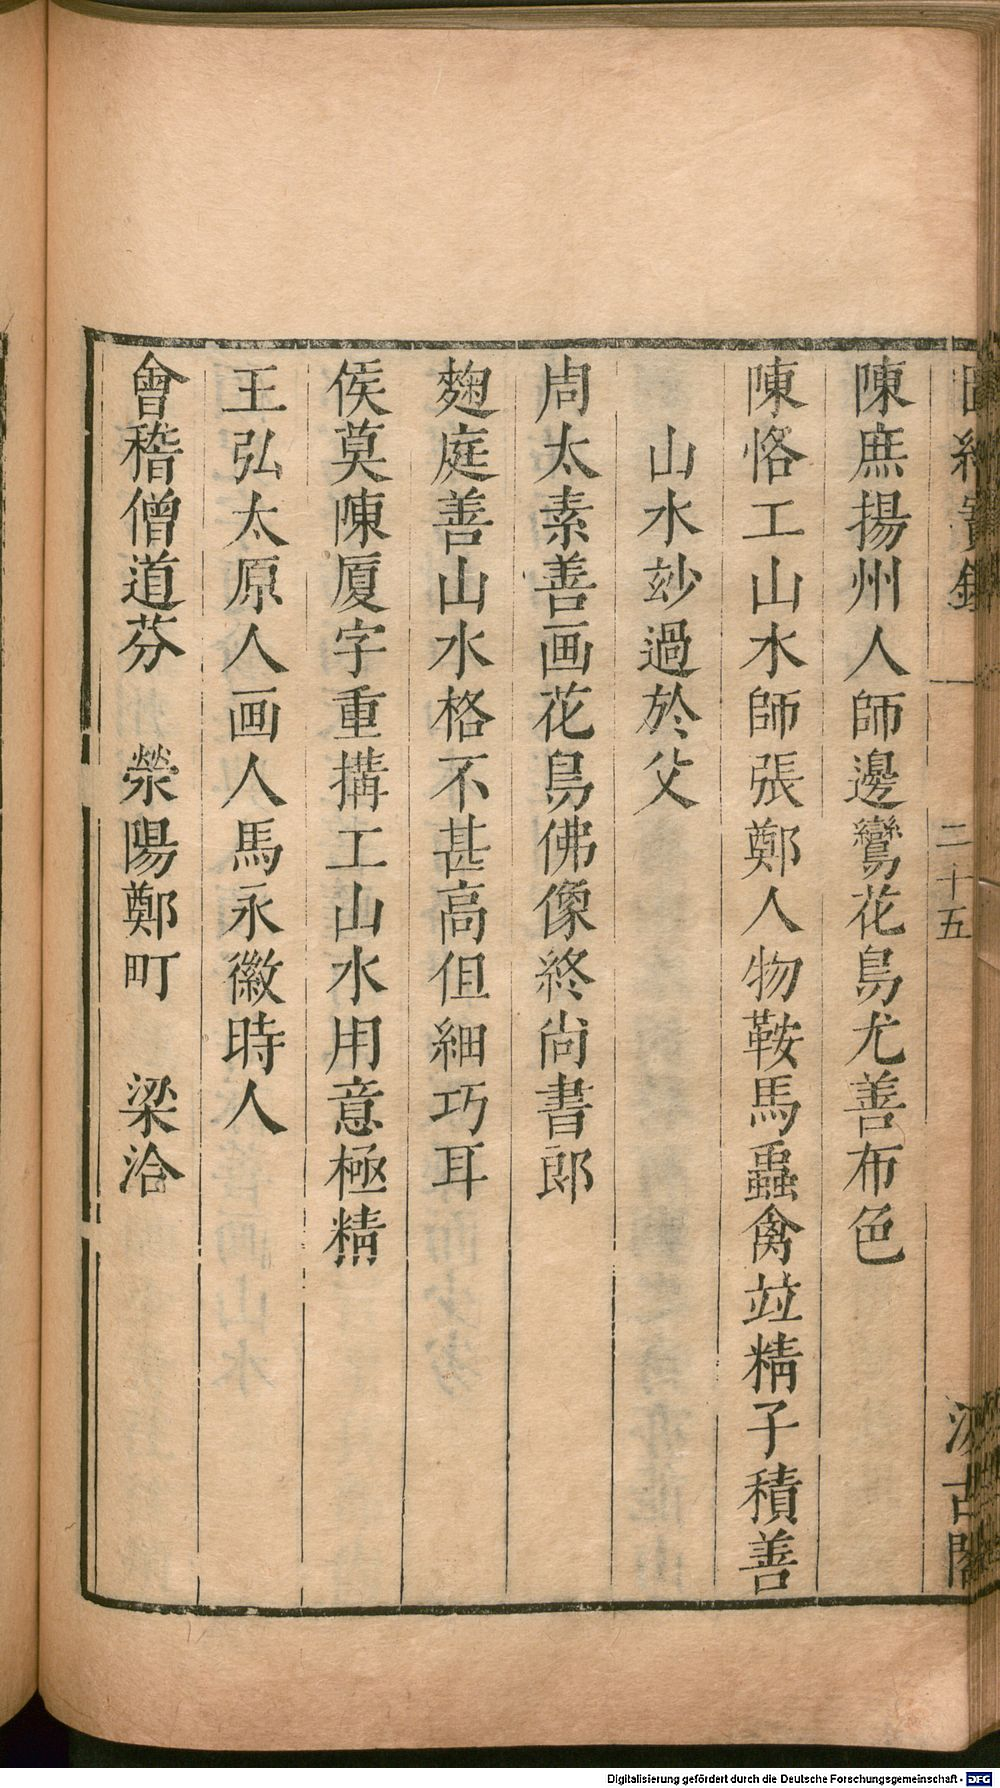 圖繪寶鑑 二十五 汲古閣
陳庶揚州人師邊鸞花鳥尤善布色
陳恪工山水師張鄭人物鞍馬蟲禽竝精子積善
山水玅過於父
周太素善画花鳥佛像終尚書郎
麴庭善山水格不甚高但細巧耳
侯莫陳厦字重搆工山水用意極精
王弘太原人画人馬永徽時人
會稽僧道芬 滎陽鄭町 梁洽
Digitalisierung gefördert durch die Deutsche Forschungsgemeinschaft - DFG